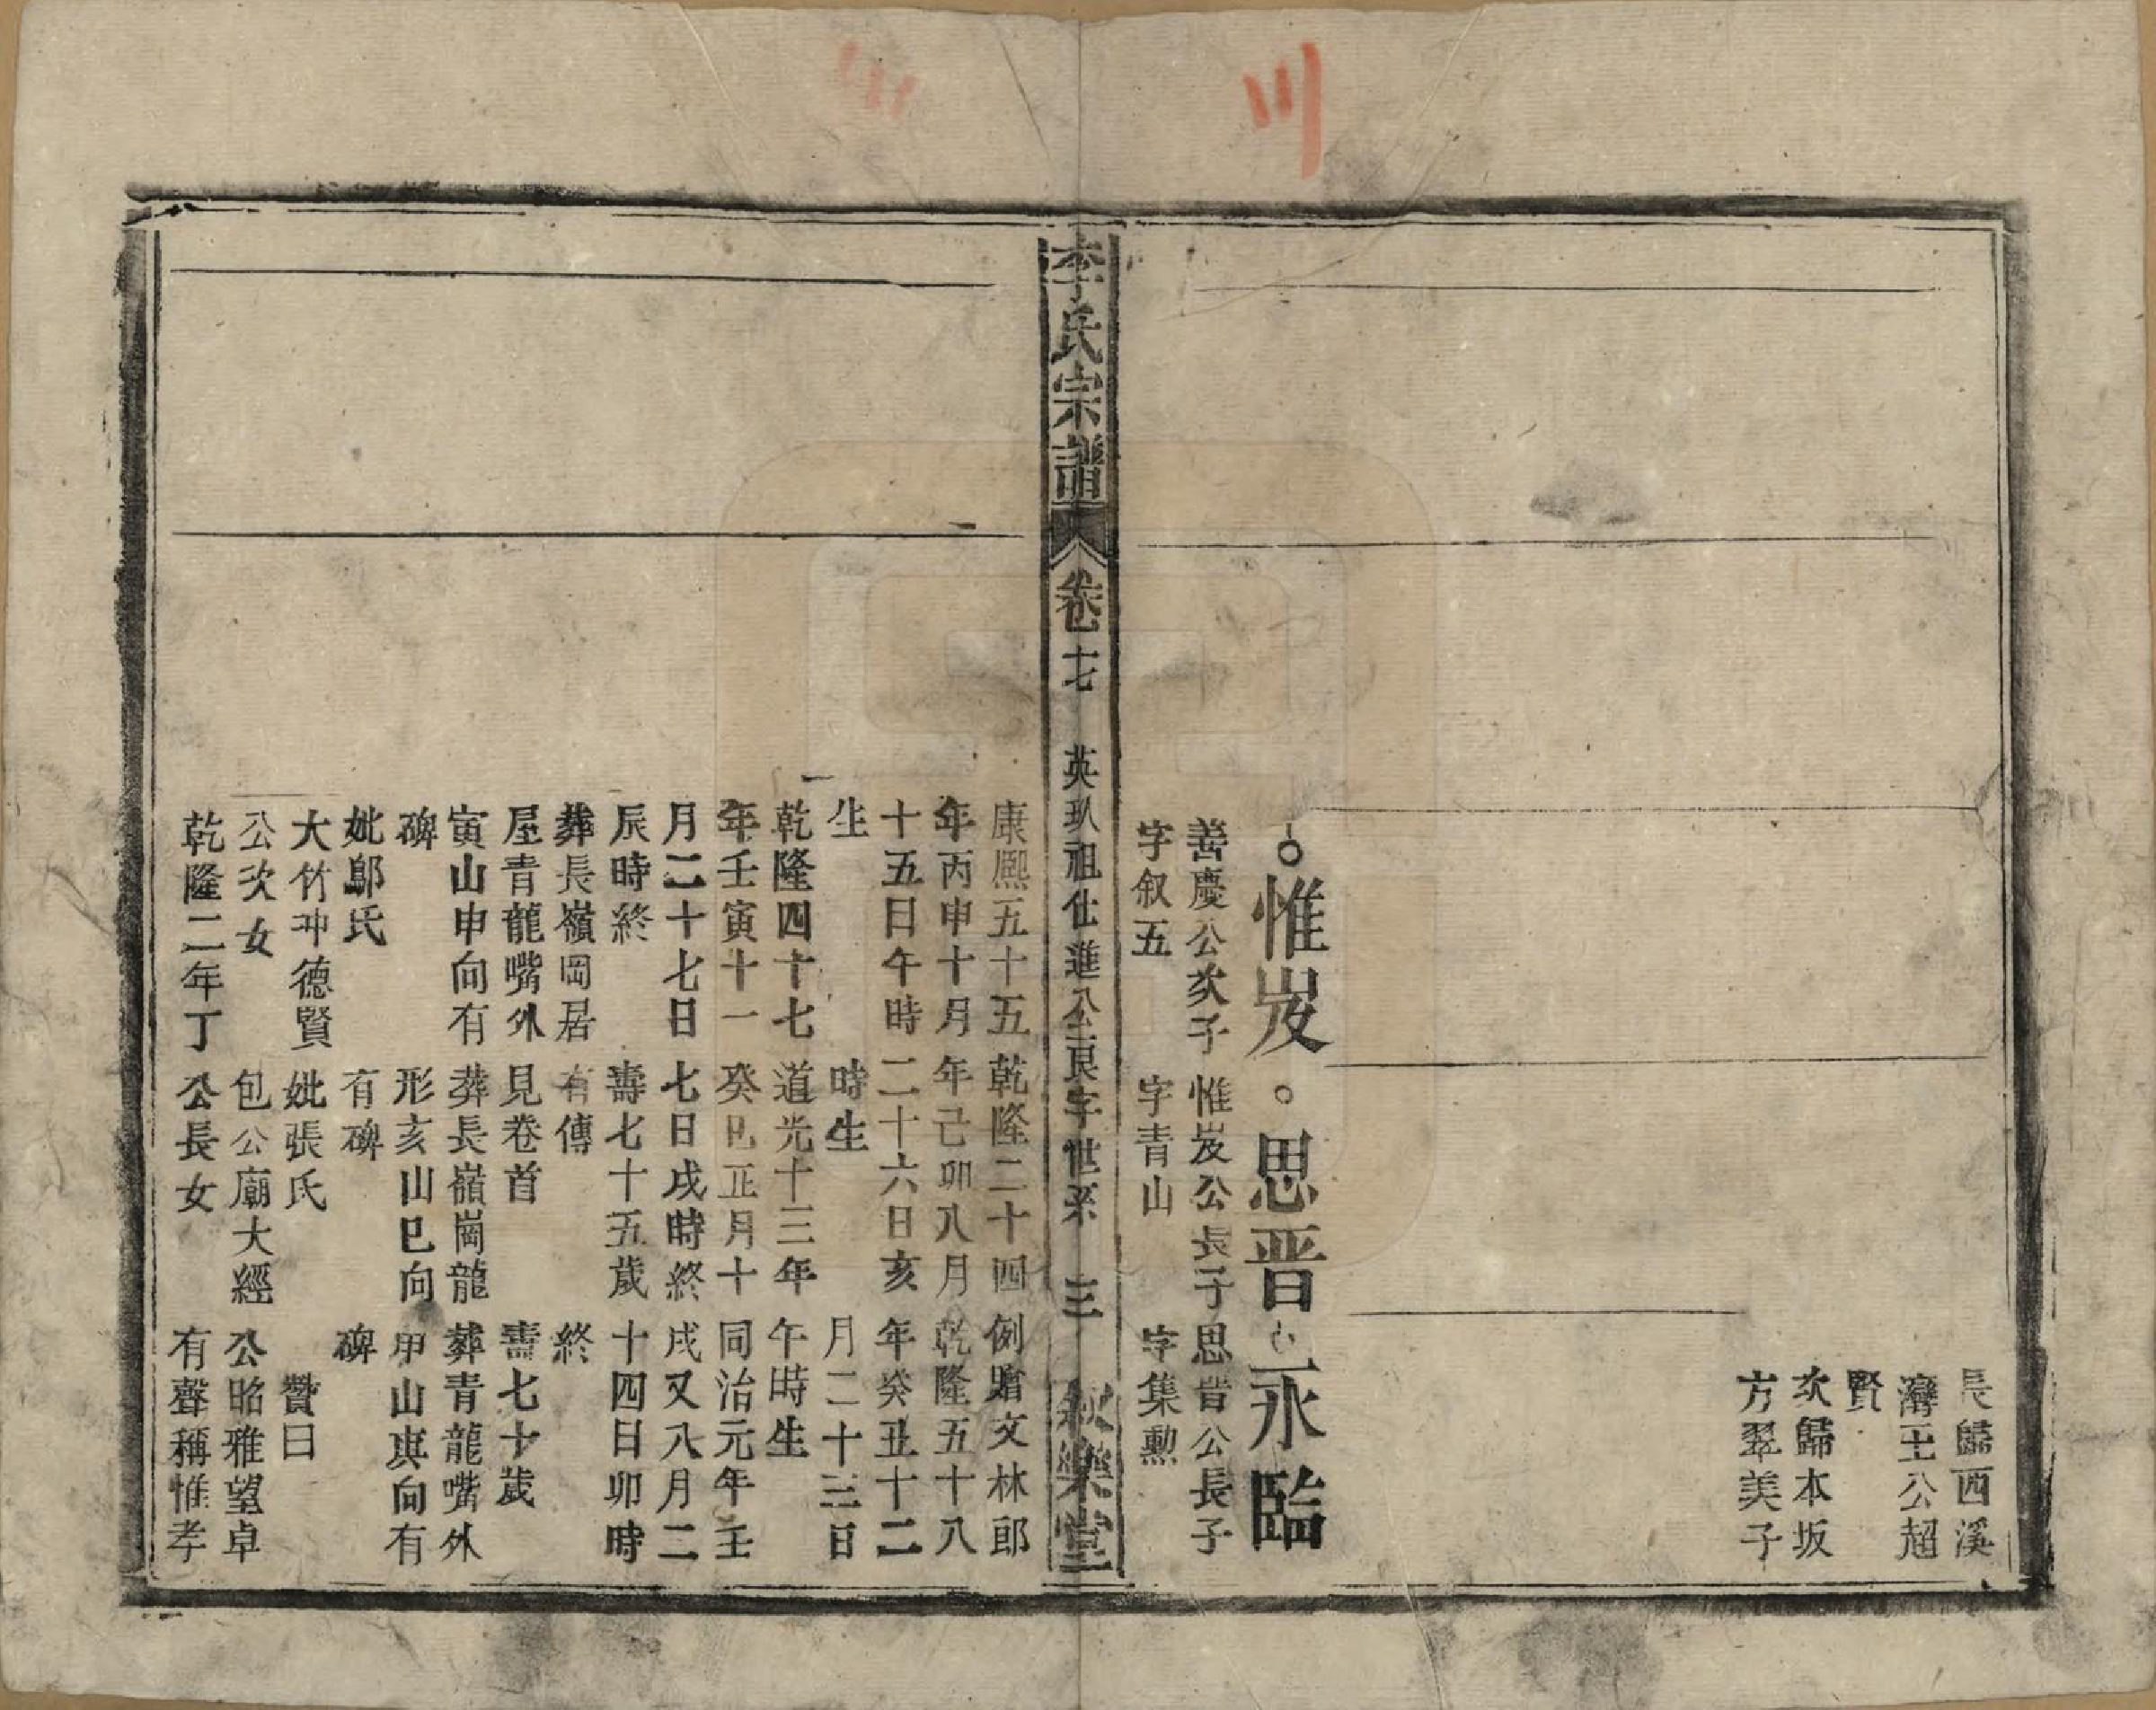 長歸西溪
灣王公超
賢
次歸本坂
方翠美子
惟岌
善慶公次子
字叙五
康熙五十五
年丙申十月
十五日午時
生
乾隆四十七
年壬寅十一
月二十七日
辰時終
葬長嶺岡居
屋青龍嘴外
寅山申向有
碑
妣鄔氏
大竹冲德賢
公次女
乾隆二年丁
思晋
惟岌公長子
字青山
乾隆二十四
年己卯八月
二十六日亥
時生
道光十三年
癸巳正月十
七日戌時終
壽七十五歲
有傳
見卷首
葬長嶺崗龍
形亥山巳向
有碑
妣張氏
包公廟大經
公長女
永臨
思晋公長子
字集勲
例贈文林郎
乾隆五十八
年癸丑十二
月二十三日
午時生
同治元年壬
戌又八月二
十四日卯時
終
壽七十歲
葬青龍嘴外
甲山庚向有
碑
贊曰
公昭雅望卓
有聲稱惟孝
李氏宗譜
卷十七
英玖祖仕進公良字世系
三
敘樂堂
川